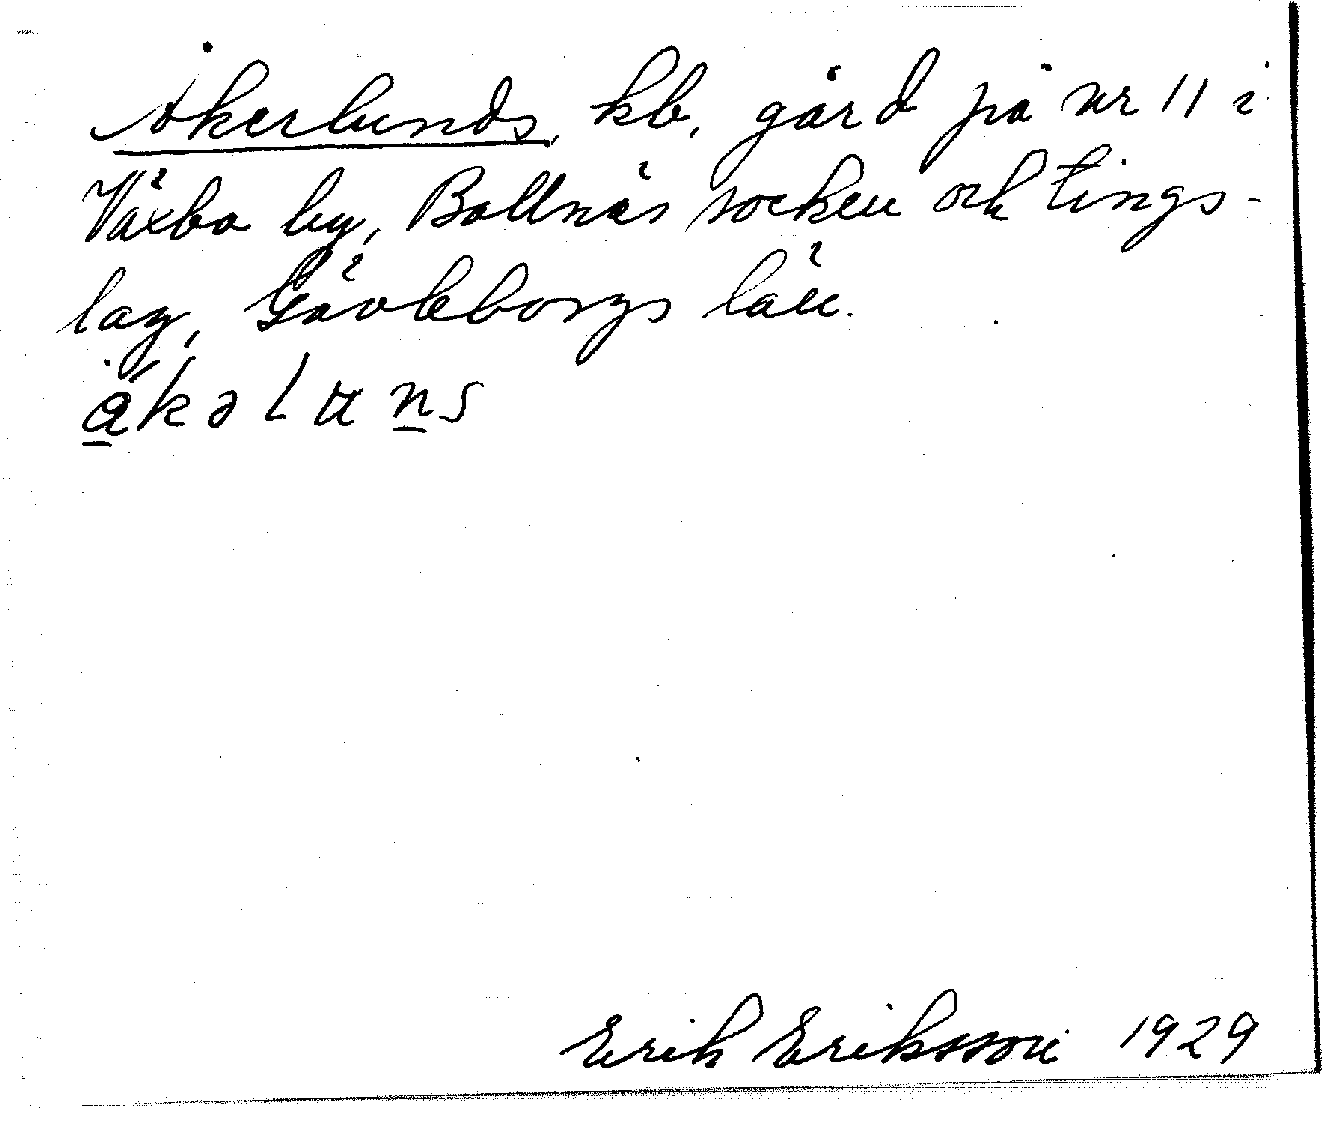 Åkerlunds, kb, gård på nr 11 i
Växbo by, Bollnäs socken och tings-
lag, Gävleborgs län.
åkəluns
Erik Eriksson 1929